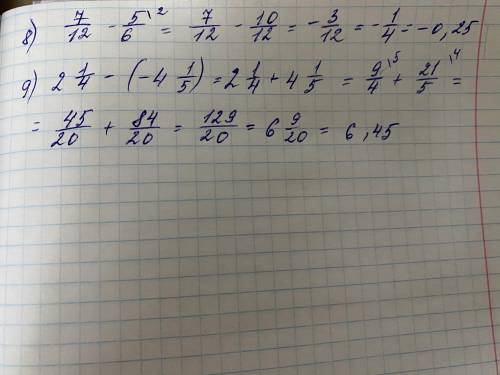 8) 7/12 - 5/6 \2 = 7/12 - 10/12 = - 3/12 = - 1/4 = -0,25
9) 2 1/4 - (-4 1/5) = 2 1/4 + 4 1/5 = 9/4 \5 + 21/5 \4 =
= 45/20 + 84/20 = 129/20 = 6 9/20 = 6,45